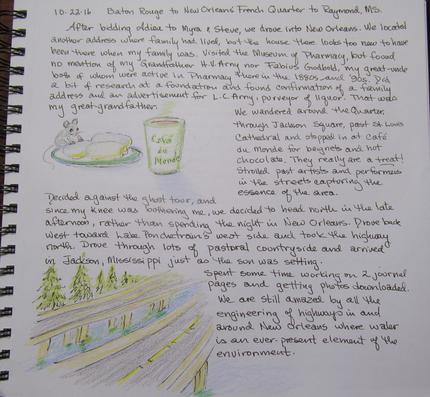 10-22-16 Baton Rouge to New Orleans' French Quarter to Raymond, MS.
After bidding adieu to Myra & Steve, we drove into New Orleans. We located
another address where family had lived, but the house there looks too new to have
been there when my family was. Visited the Museum of Pharmacy, but found
no mention of my Grandfather H.V. Arny nor Fabius Godbold, my great-uncle
both of whom were active in Pharmacy there in the 1880s and 90s. Did
a bit of research at a foundation and found confirmation of a family
address and an advertisement for L.C. Arny, purveyor of liquor. That was
my great-grandfather.
We wandered around the Quarter,
through Jackson Square, past St. Louis
Cathedral and stopped in at Café
du Monde for beignets and hot
chocolate. They really are a treat!
Strolled past artists and performers
in the streets capturing the
essence of the area.
Café
du
Monde
Decided against the ghost tour, and
since my knee was bothering me, we decided to head north in the late
afternoon, rather than spending the night in New Orleans. Drove back
west toward Lake Pontchartrain's west side and took the highway
north. Drove through lots of pastoral countryside and arrived
in Jackson, Mississippi just as the sun was setting.
Spent some time working on 2 journal
pages and getting photos downloaded.
We are still amazed by all the
engineering of highways in and
around New Orleans where water
is an ever-present element of the
environment.